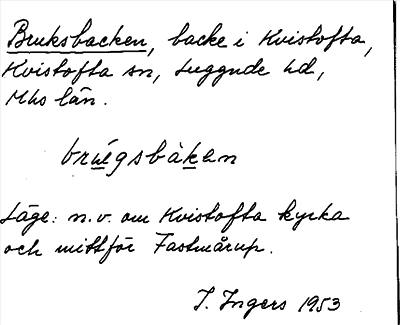 Bruksbacken, backe i Kvistofta,
Kvistofta sn, Luggude hd,
Mhs län.
brúgsbàkan
Läge: n.v. om Kvistofta kyrka
och mittför Fastmårup.
I. Ingers 1953